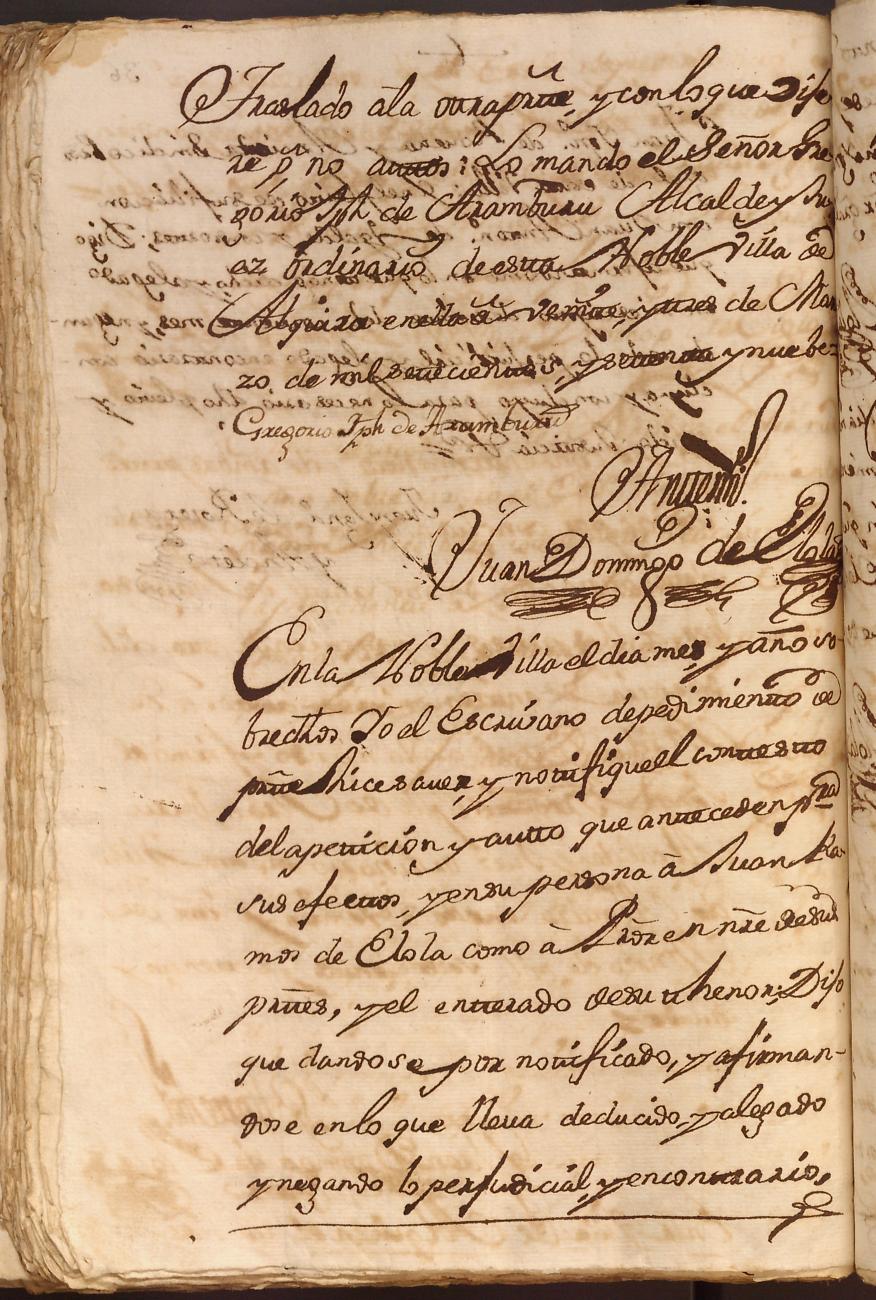 Traslado ala otra prte, y con lo que Dije
re ó no auttos: Lo mando el Señor Gre
gorio Jph. de Aramburu Alcalde y Ju
ez ordinario de esta Noble Villa de
en ella à veinte, y tres de Mar
zo de mil settecienttos, y settenta y nuebe
Gregorio Jph de Aramburu
Antemi
Juan Domingo de
En la Noble Villa el dia mes, y año so-
bredhos Yo el Escrivano de pedimientto de
prtte hice saver, y nottifiquè el conttestto
dela petticion y autto que antteceden pra
sus efecttos, y en su persona à Juan Ra
mos de Elola como à Prõr en nre de sus
prttes, y el entterado de su thenor; Dijo
que dandose por nottificado, y afirman-
dose en lo que lleva deducido, y alegado
y negando lo perjudicial, y en conttrario,